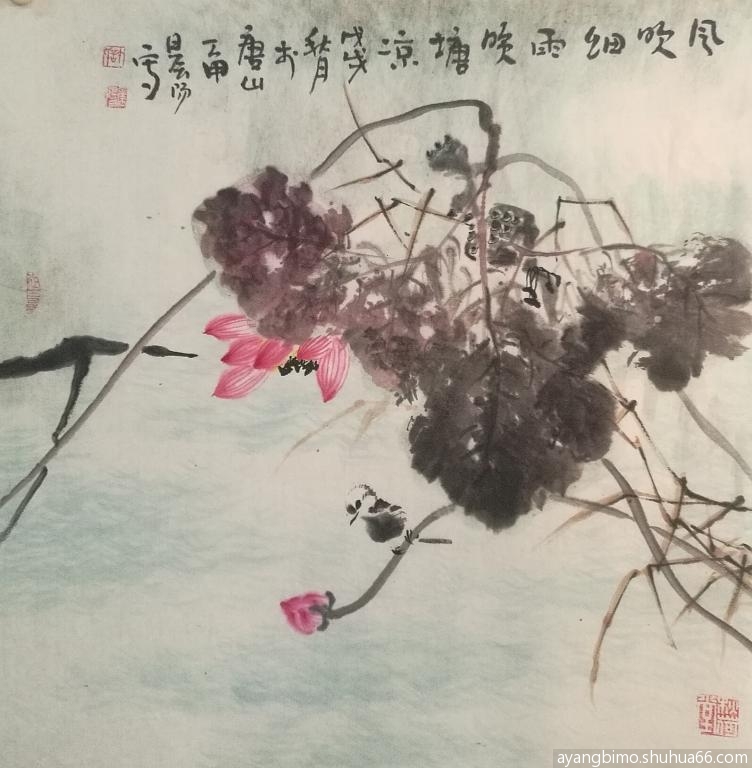 风吹细雨晚塘凉戊戌秋月于唐山晨阳写
ayangbimo.shuhua66.com